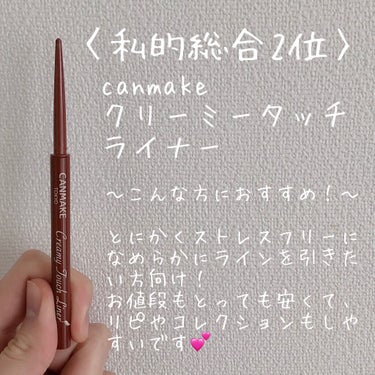 〈私的総合2位〉
canmake
クリーミータッチ
ライナー
～こんな方におすすめ！～
とにかくストレスフリーに
なめらかにラインを引きた
い方向け！
お値段もとっても安くて、
リピやコレクションもしや
すいです💕
CANMAKE
TOKYO
Creamy Touch Liner